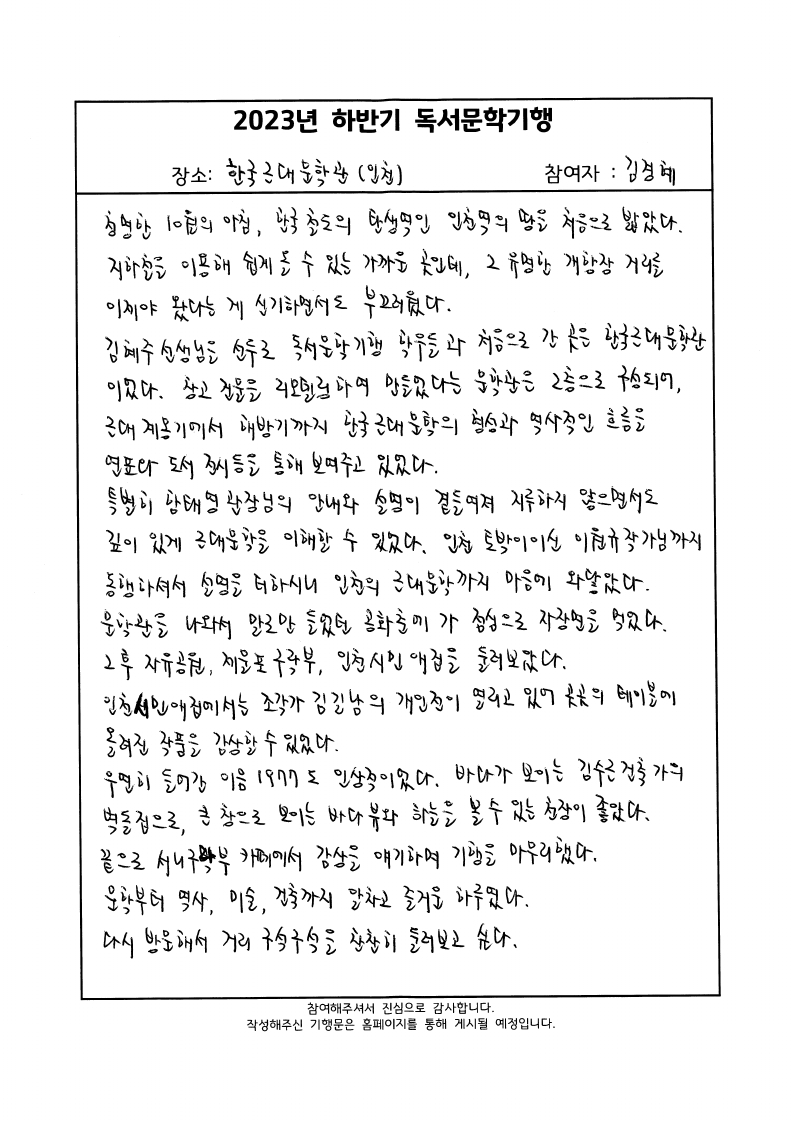 2023년 하반기 독서문학기행
장소: 한국근대문학관 (인천) 참여자 : 김경혜
청명한 10월의 아침, 한국 철도의 탄생역인 인천역의 땅을 처음으로 밟았다.
지하철을 이용해 쉽게 올 수 있는 가까운 곳인데, 그 유명한 개항장 거리를
이제야 왔다는 게 신기하면서도 부끄러웠다.
김혜주 선생님을 선두로 독서문학기행 학우들과 처음으로 간 곳은 한국근대문학관
이었다. 창고 건물을 리모델링하여 만들었다는 문학관은 2층으로 구성되어,
근대계몽기에서 해방기까지 한국근대문학의 형성과 역사적인 흐름을
연표와 도서 전시 등을 통해 보여주고 있었다.
특별히 함태영 관장님의 안내와 설명이 곁들여져 지루하지 않으면서도
깊이 있게 근대문학을 이해할 수 있었다. 인천 토박이이신 이원규 작가님까지
동행하셔서 설명을 더하시니 인천의 근대문학까지 마음에 와닿았다.
문학관을 나와서 말로만 들었던 공화춘에 가 점심으로 자장면을 먹었다.
그 후 자유공원, 제물포구락부, 인천시민애집을 둘러보았다.
인천시민애집에서는 조각가 김길남의 개인전이 열리고 있어 곳곳의 테이블에
올려진 작품을 감상할 수 있었다.
우연히 들어간 이음 1977도 인상적이었다. 바다가 보이는 김수근 건축가의
벽돌집으로, 큰 창으로 보이는 바다 뷰와 하늘을 볼 수 있는 천장이 좋았다.
끝으로 서니구락부 카페에서 감상을 얘기하며 기행을 마무리했다.
문학부터 역사, 미술, 건축까지 알차고 즐거운 하루였다.
다시 방문해서 거리 구석구석을 찬찬히 둘러보고 싶다.
참여해주셔서 진심으로 감사합니다.
작성해주신 기행문은 홈페이지를 통해 게시될 예정입니다.